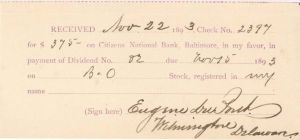 RECEIVED Nov 22 1893 Check No. 2397
for $ 375- on Citizens National Bank, Baltimore, in my favor, in
payment of Dividend No. 82 due Nov 15 1893
on B & O Stock, registered in my
name
(Sign here) Eugene
Wilmington
Delaware